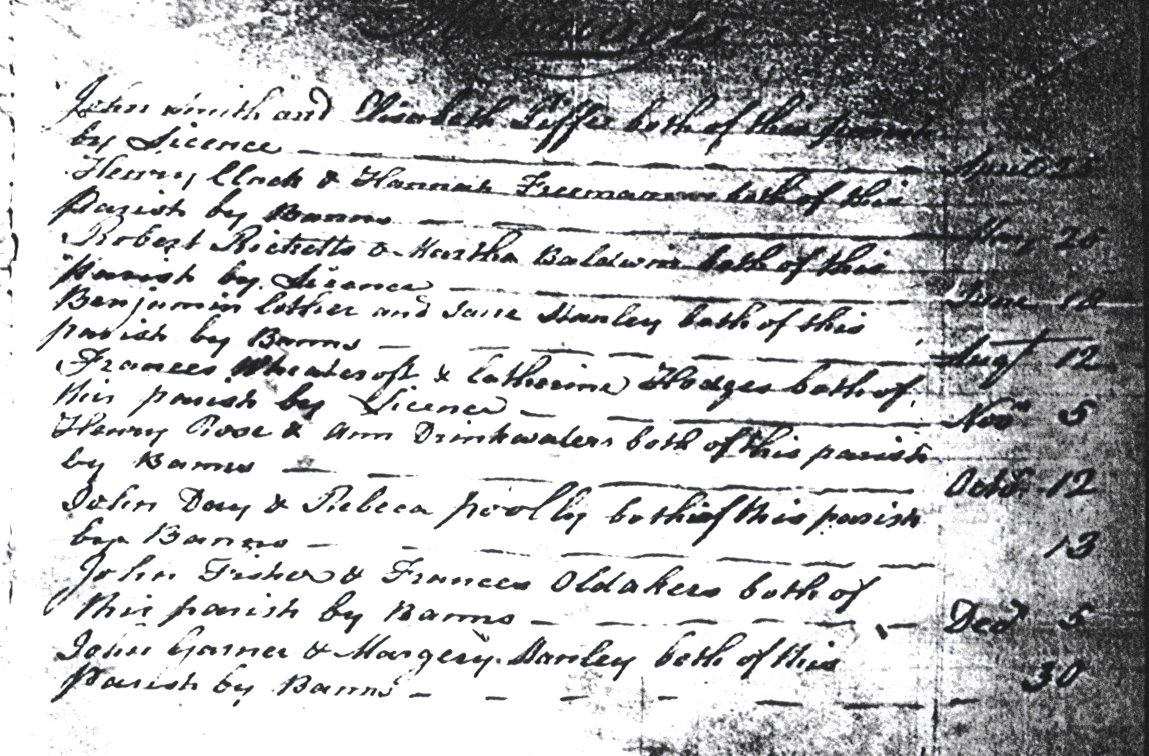 Marriages
John Smith and Elisabeth Siffer both of this parish
by Licence April 25
Henry Clack & Hannah Freeman both of this
Parish by Banns May 25
Robert Ricketts & Martha Baldwin both of this
Parish by Licence June 18
Benjamin Cother and Jane Stanley both of this
parish by Banns Augt 12
Frances Wheatcroft & Catherine Hodges both of
this parish by Licence Novr 5
Henry Rose & Ann Drinkwaters both of this parish
by Banns Octbr 12
John Day & Rebeca poolly both of this parish
by Banns 13
John Fisher & Frances Oldakers both of
this parish by Banns Decr 5
John Garner & Margery Stanley both of this
Parish by Banns 30